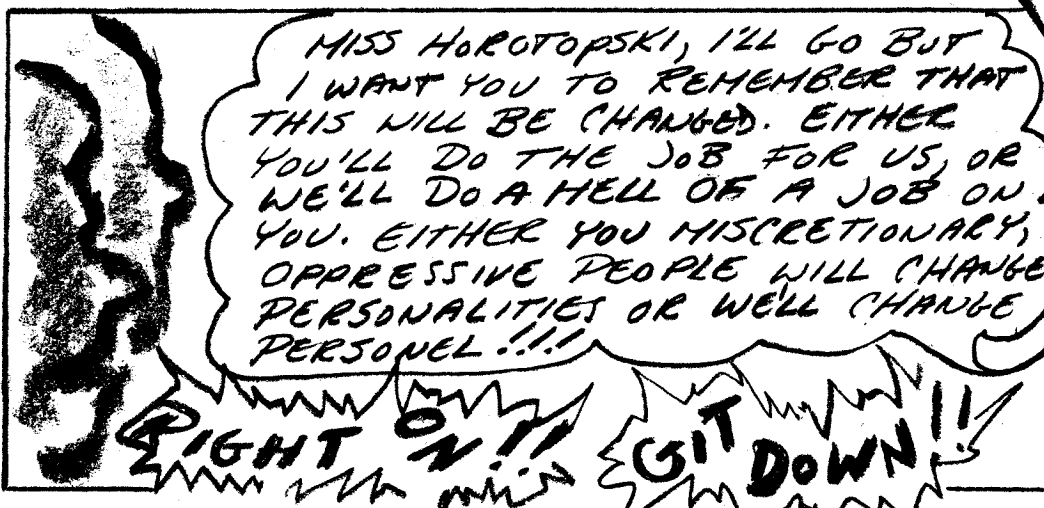 MISS HOROTOPSKI, I'LL GO BUT
I WANT YOU TO REMEMBER THAT
THIS WILL BE CHANGED. EITHER
YOU'LL DO THE JOB FOR US, OR
WE'LL DO A HELL OF A JOB ON
YOU. EITHER YOU MISCRETIONARY,
OPPRESSIVE PEOPLE WILL CHANGE
PERSONALITIES OR WE'LL CHANGE
PERSONEL!!!!
RIGHT ON!!
GIT DOWN!!